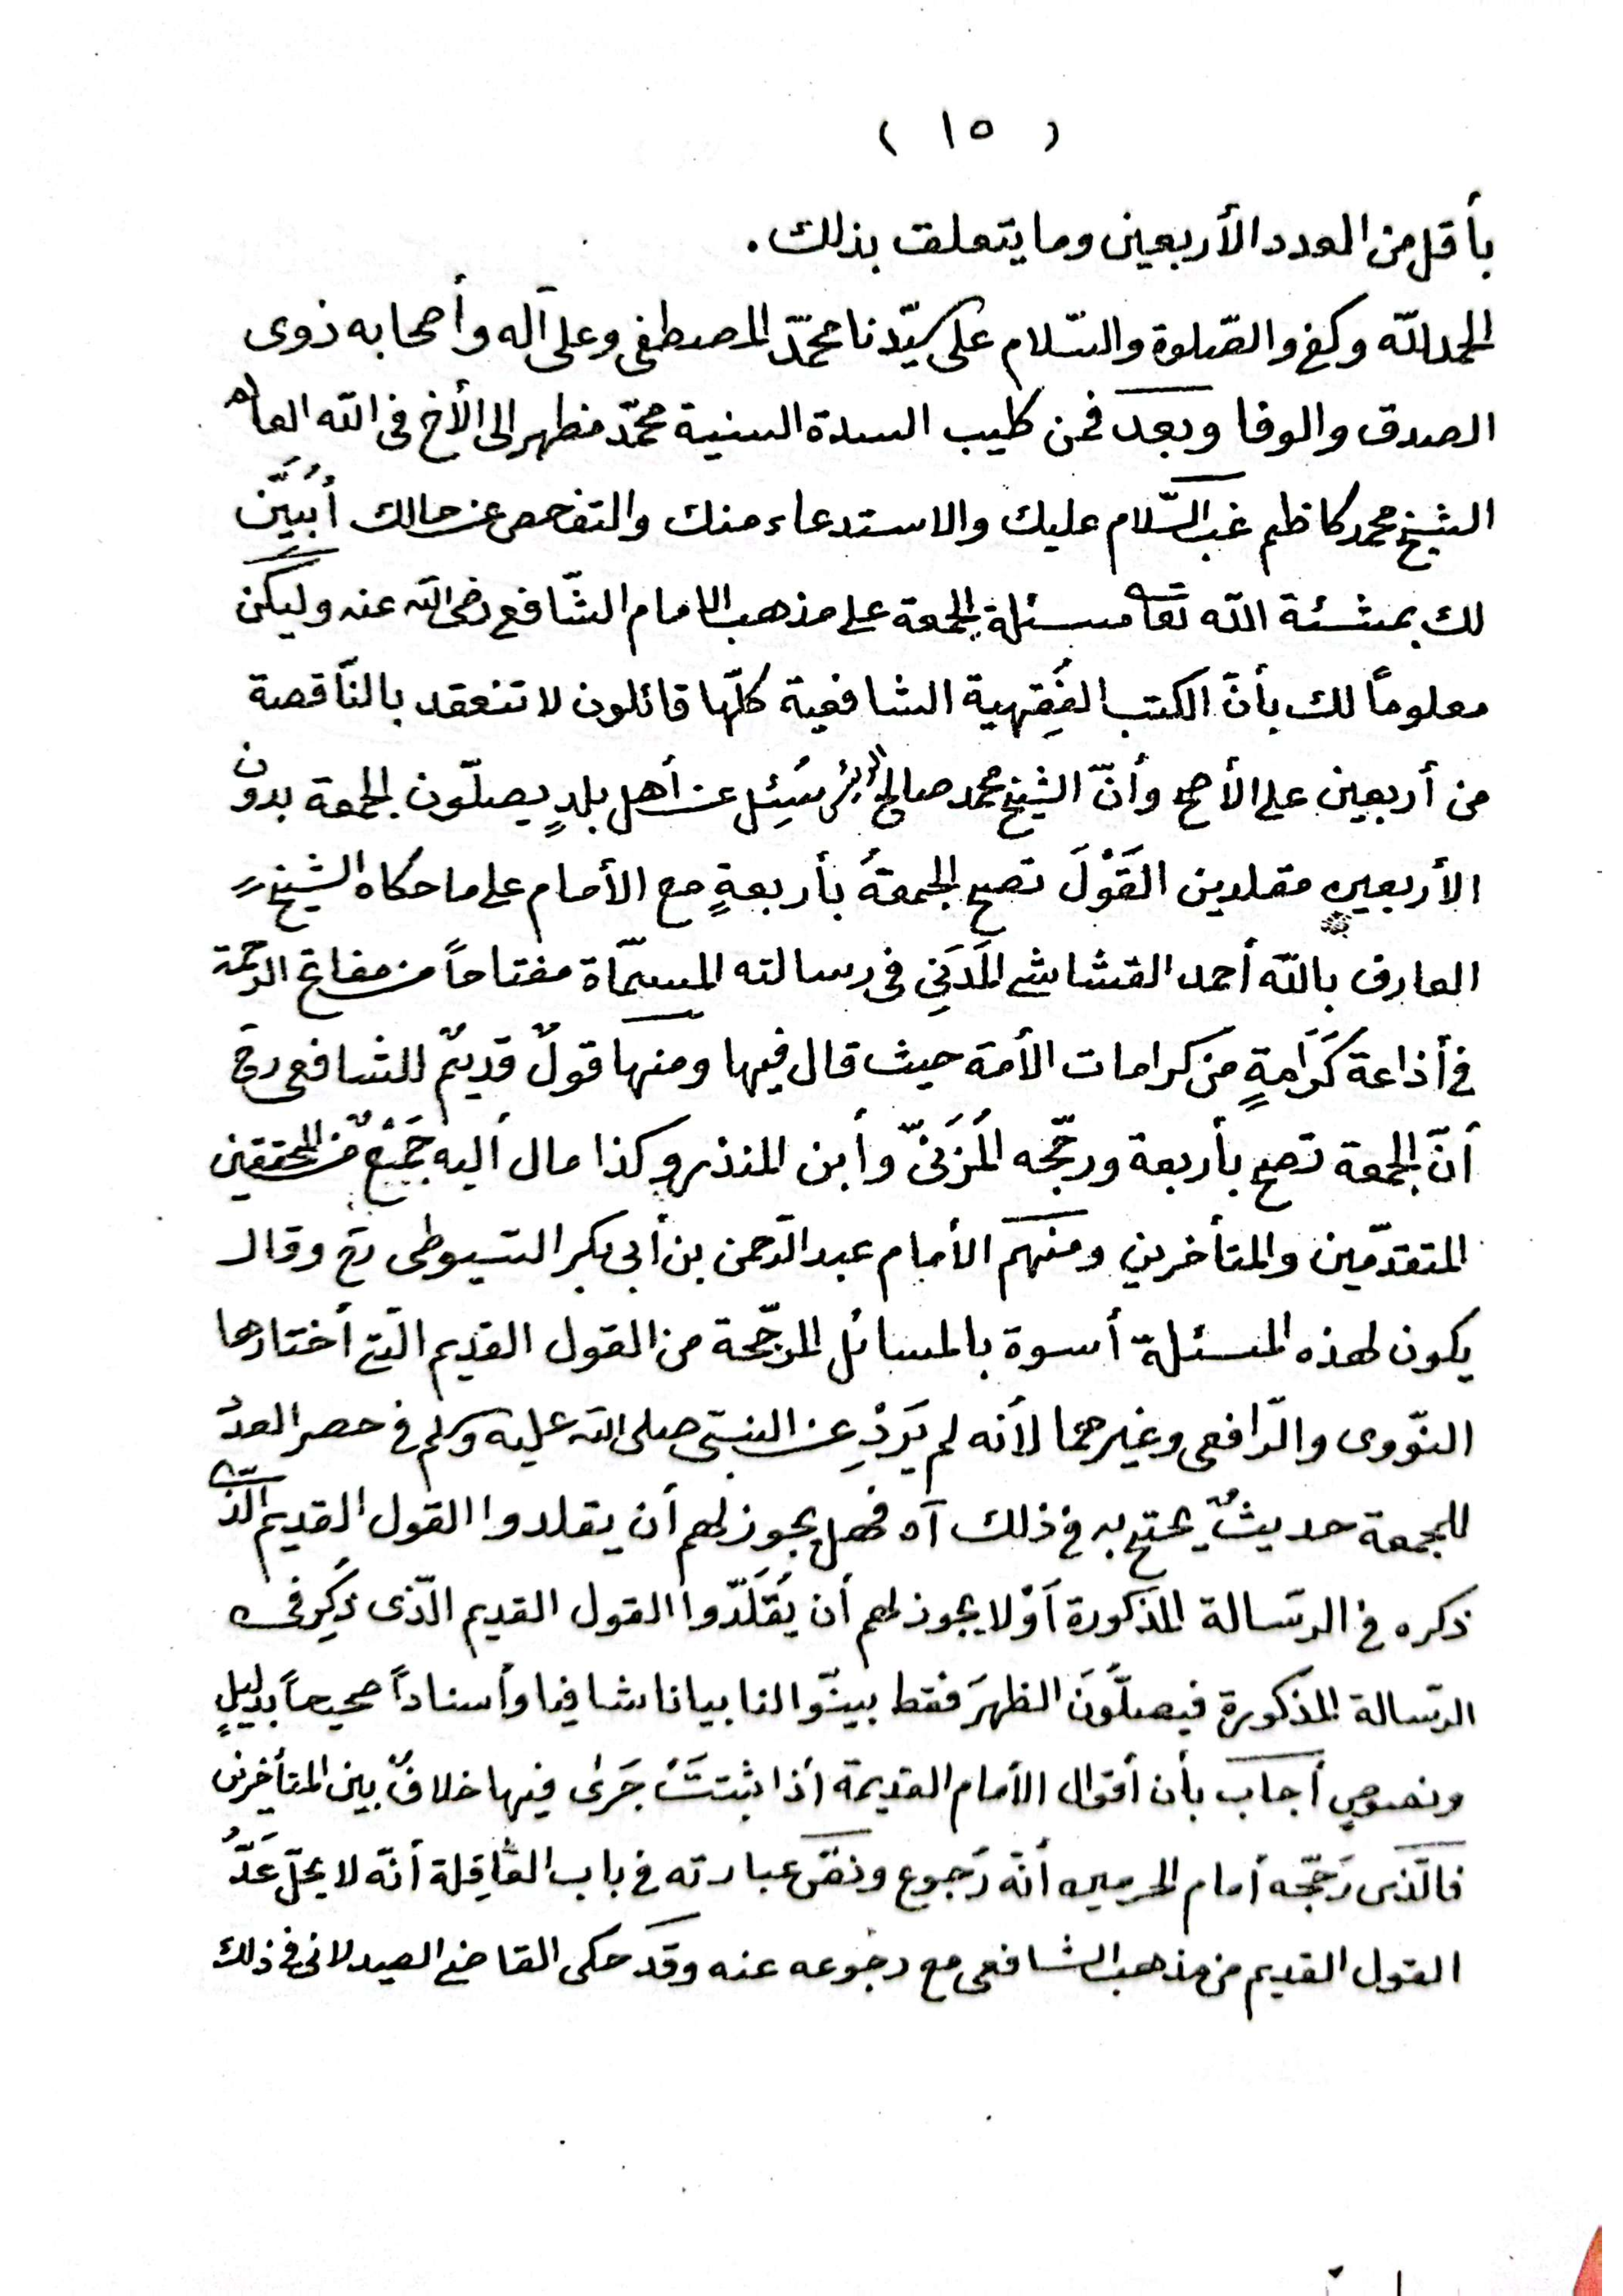 ( ١٥ )
بأقل من العدد الأربعين وما يتعلق بذلك .
الحمد لله وكفى والصّلوة والسّلام على سيّدنا محمّد المصطفى وعلى آله وأصحابه ذوى
الصدق والوفا وبعد فمن كليب السدة السنية محمّد مظهر الى الأخ فى الله العالم
الشيخ محمد كاظم غب السّلام عليك والاستدعاء منك والتفحص عن حالك أُبَيِّن
لك بمشئة الله تعا مسئلة الجمعة على مذهب الامام الشّافعى رضى الله عنه وليكن
معلوماً لك بأنّ الكتب الفِقهية الشافعية كلّها قائلون لا تنعقد بالنّاقصة
من أربعين على الأصح وأنّ الشيخ محمد صالح الرئيس سُئِل عن أهل بلدٍ يصلّون الجمعة بدون
الأربعين مقلدين القَوْلَ تصح الجمعةُ بأربعةٍ مع الأمام على ما حكاه الشيخ
العارف بالله أحمد القشاشى المَدَنِي فى رسالته المسمّاة مفتاحاً من مفاتح الرحمة
فى أذاعة كَرَامةٍ من كرامات الأمة حيث قال فيها ومنها قولٌ قديمٌ للشافعى رح
أنّ الجمعة تصح بأربعة ورجّحه المُزَنىّ وأبن المنذر وكذا مال أليه جَمْعٌ من المحققين
المتقدّمين والمتأخرين ومنهم الأمام عبد الرّحمن بن أبى بكر السّيوطى رح وقال
يكون لهذه المسئلة أسوة بالمسائل المرجّحة من القول القديم الّتى أختارها
النّووى والرّافعى وغيرهما لأنه لم يَرِدْ عن النبىّ صلى الله عليه وسلم فى حصر العدد
للجمعة حديثٌ يحتج به فى ذلك آه فهل يجوز لهم أن يقلدوا القول القديم الّذى
ذكره فى الرسّالة المذكورة أوْ لا يجوز لهم أن يُقَلّدوا القول القديم الّذى ذُكِر فى
الرسّالة المذكورة فيصلّونَ الظهرَ فقط بيّنوا لنا بيانا شافيا وأسناداً صحيحاً بدليلٍ
ونصوصٍ أجاب بأن أقوال الأمام القديمة أذا ثبتتْ جَرىٰ فيها خلافٌ بين المتأخرين
فالّذى رَجّحه أمام الحرمين أنّه رَجوع ونصّ عبارته فى باب العَاقِلة أنّه لا يحلّ عَدُّ
القول القديم من مذهب الشافعى مع رجوعه عنه وقد حكى القاضى الصيدلانى فى ذلك